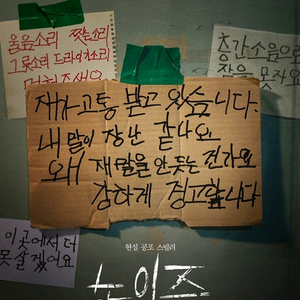 울음소리 찢는소리
그릇소리 드라이소리
멈춰주세요
층간소음으로
잠을 못자요
제가 고통 받고 있습니다.
내 말이 장난 같나요
왜 제 말을 안 듣는 건가요
강하게 경고합니다
이곳에서 더
못 살겠어요
현실 공포 스릴러
노이즈